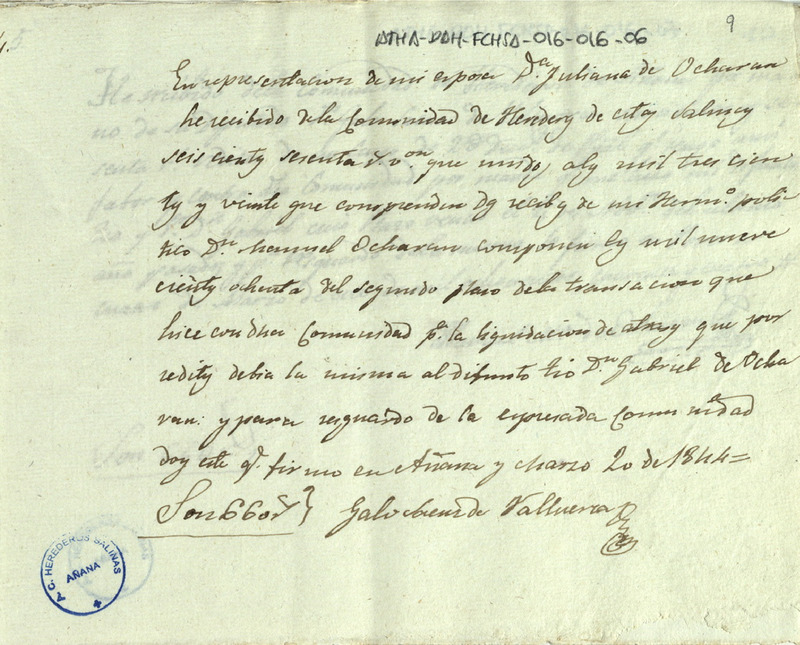 9
ATHA-DAH-FCHSA-016-016-06
En representacion de mi esposa D.ª Juliana de Ocharan
he recibido de la Comunidad de Hereder.s de estas Salinas
seis cientos sesenta r.s v.on que unidos a los mil tres cien
tos y veinte que comprenden dos recibos de mi Herm.o poli
tico D.n Manuel Ocharan componen los mil nueve
cientos ochenta del segundo plazo de la transacion que
hice con dha Comunidad p.ª la liquidacion de atrasos que por
reditos debia la misma al difunto tio D.n Gabriel de Ocha
ran: y para resguardo de la espresada Comunidad
doy este q.e firmo en Añana y Marzo 20 de 1844=
Son 660 r.s } Galo de Valluerca
A. C. HEREDEROS SALINAS
AÑANA